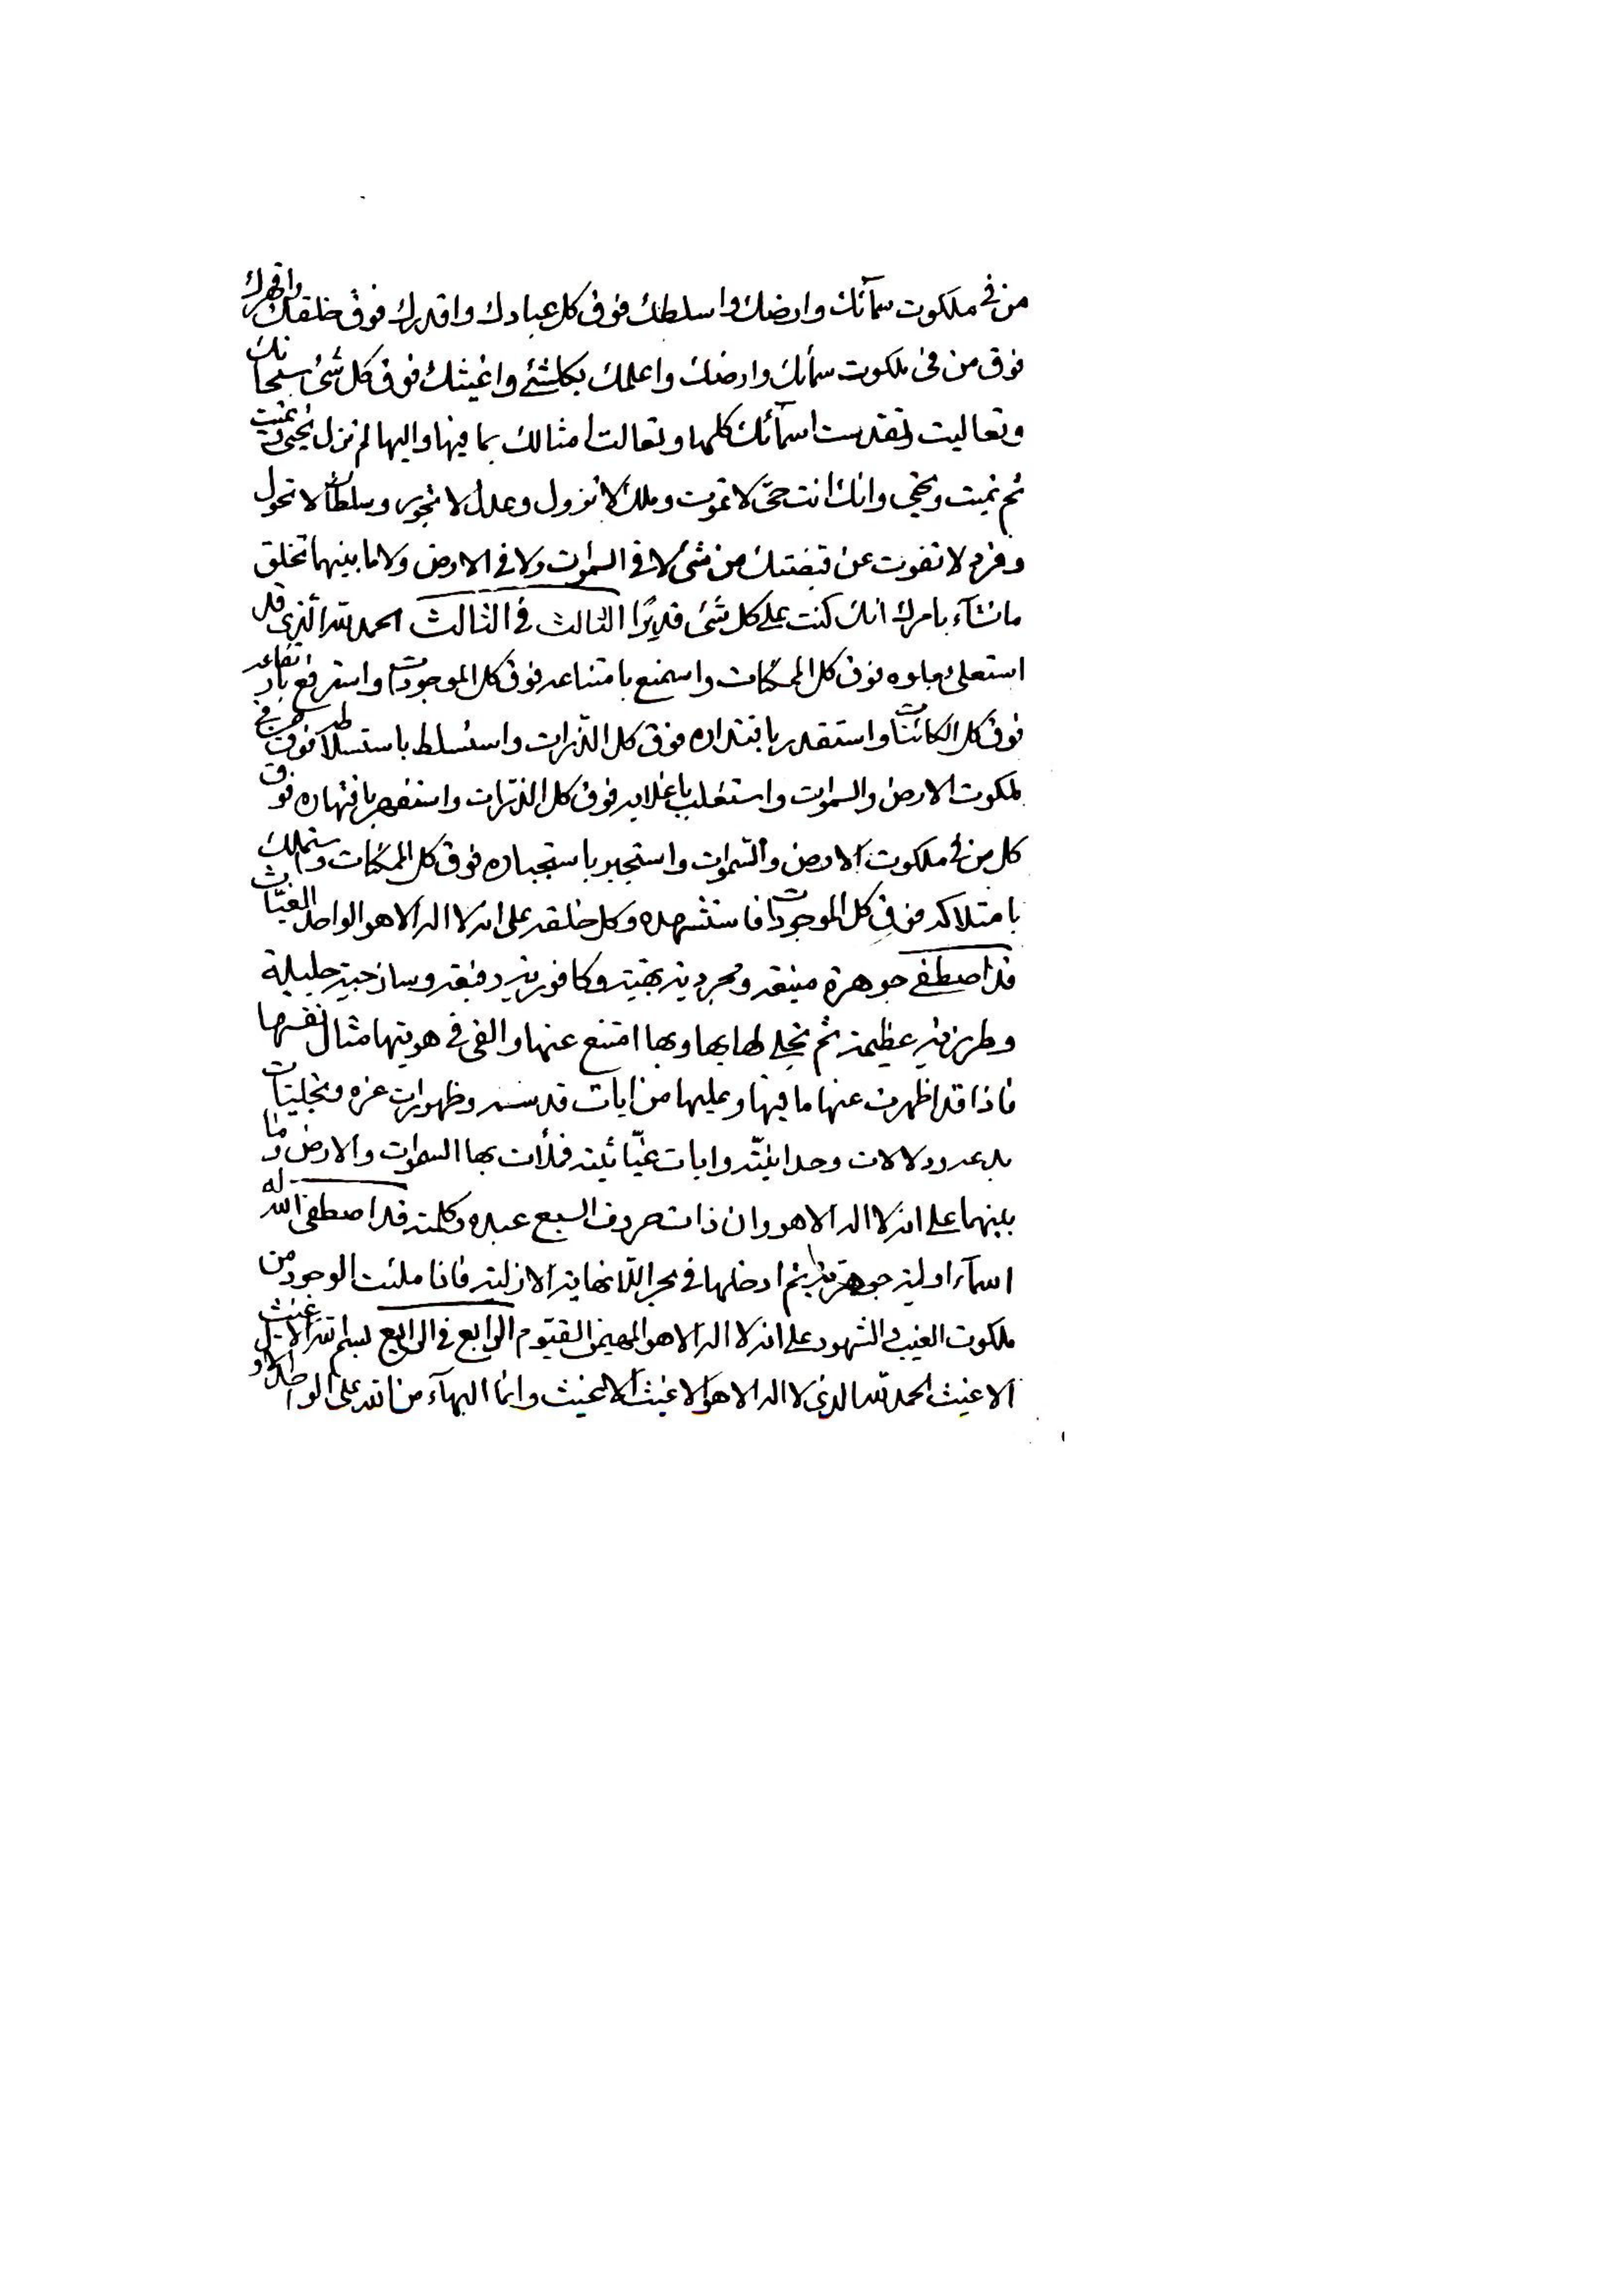 من في ملكوت سمآئك وارضك واسلطك فوق كل عبادك واقدرك فوق خلقك واقهرك
فوق من في ملكوت سمائك وارضك واعلمك بكلشئ واغيثك فوق كل شئ سبحانك
وتعاليت وتقدست اسمآئك كلها وتعالت امثالك بما فيها واليها لم تزل تحيى وتميت
ثم تميت وتحيى وانك انت حي لا تموت وملك لا تزول وعدل لا تجور وسلطان لا تحول
وفرد لا تفوت عن قبضتك من شئ لا في السموات ولا في الارض ولا ما بينهما تخلق
ما تشآء بامرك انك كنت على كل شئ قديرًا الثالث في الثالث الحمد لله الذي قد
استعلى بعلوه فوق كل الممكنات واستمنع بامتناعه فوق كل الموجودات واسترفع بارتفاعه
فوق كل الكائنات واستقدر باقتداره فوق كل الذرات واستسلط باستسلاطه فوق من في
ملكوت الارض والسموات واستغلب باغلابه فوق كل الذرات واستقهر باقتهاره فوق
كل من في ملكوت الارض والسموات واستجبر باستجباره فوق كل الممكنات واستملك
بامتلاكه من في كل الموجودات فاستشهده وكل خلقه على انه لا اله الا هو الواحد الغياث
قد اصطفى جوهرة منيعة ومجردية بهية وكافورية رفيعة وساذجية جليلة
وطرزية عظيمة ثم تجلى لها بها وبها امتنع عنها والقى في هويتها مثال نفسها
فاذا قد اظهرت عنها ما فيها وعليها من ايات قدسه وظهورات عزه وتجليات
بدعه ودلالات وحدانيته وايات غياثيته فملأت بها السموات والارض وما
بينهما على انه لا اله الا هو وان ذات حروف السبع عبده وكلمته قد اصطفى الله له
اسمآء اولية جوهرية ثم ادخلها في بحر اللانهاية الازلية فاذا ملئت الوجود من
ملكوت الغيب والشهود على انه لا اله الا هو المهيمن القيوم الرابع في الرابع بسم الله الاغيث
الاغيث الحمد لله الذي لا اله الا هو الاغيث الاغيث وانما البهآء من الله على الواحد الاول